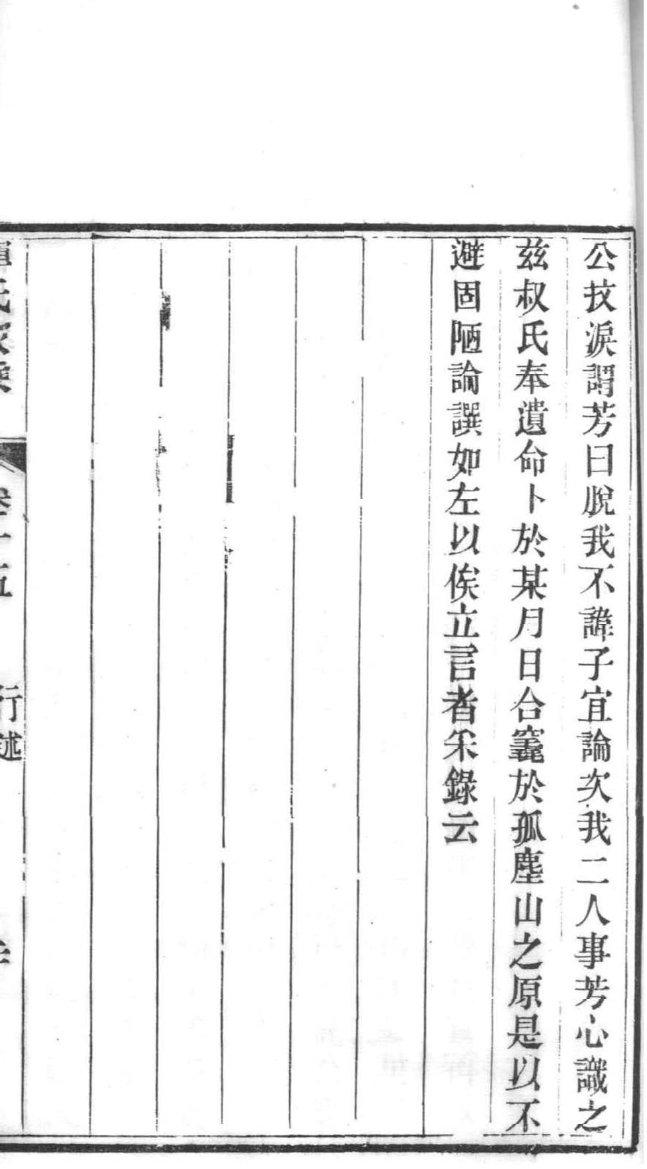 公抆淚謂芳曰脫我不諱子宜論次我二人事芳心識之
茲叔氏奉遺命卜於某月日合窆於孤塵山之原是以不
避固陋論譔如左以俟立言者采錄云
氏家乘
卷十五
行述